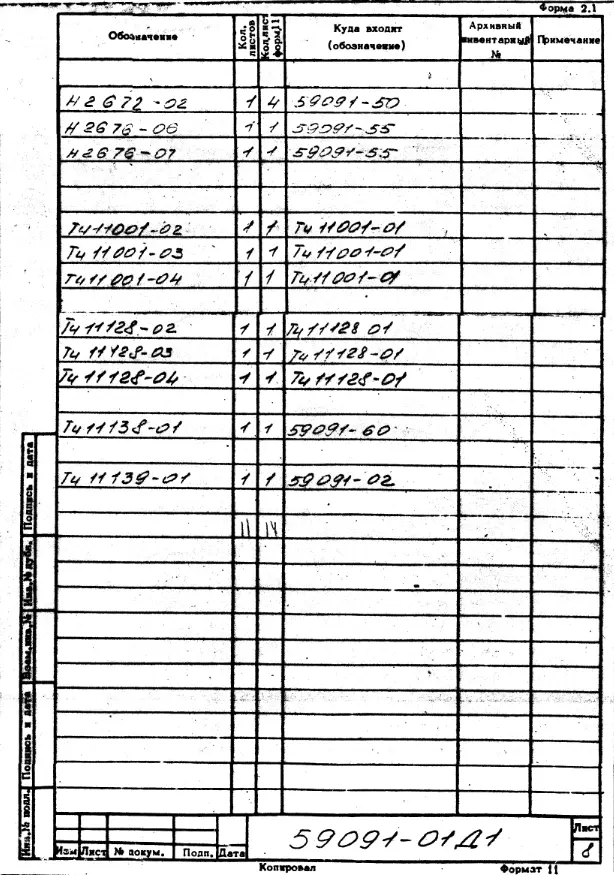 Форма 2.1
Обозначение Кол. листов Кол.лист форм.11 Куда входит (обозначение) Архивный инвентарный № Примечание
Н2672-02 1 4 59091-50
Н2676-06 1 1 59091-55
Н2676-07 1 1 59091-55
Тч11001-02 1 1 Тч11001-01
Тч11001-03 1 1 Тч11001-01
Тч11001-04 1 1 Тч11001-01
Тч11128-02 1 1 Тч11128 01
Тч11128-03 1 1 Тч11128-01
Тч11128-04 1 1 Тч11128-01
Тч11138-01 1 1 59091-60
Тч11139-01 1 1 59091-02
11 14
Подпись и дата
Инв.№ дубл.
Взам.инв.№
Подпись и дата
Инв.№ подл.
Изм Лист № докум. Подп. Дата
59091-01Д1
Лист
8
Копировал Формат 11